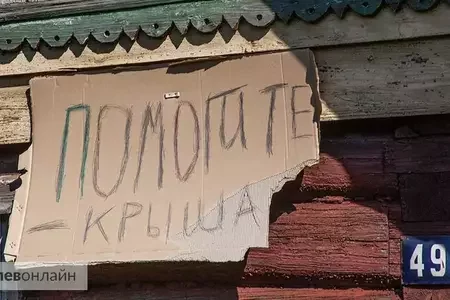 ПОМОГИТЕ
- КРЫША
49
левонлайн